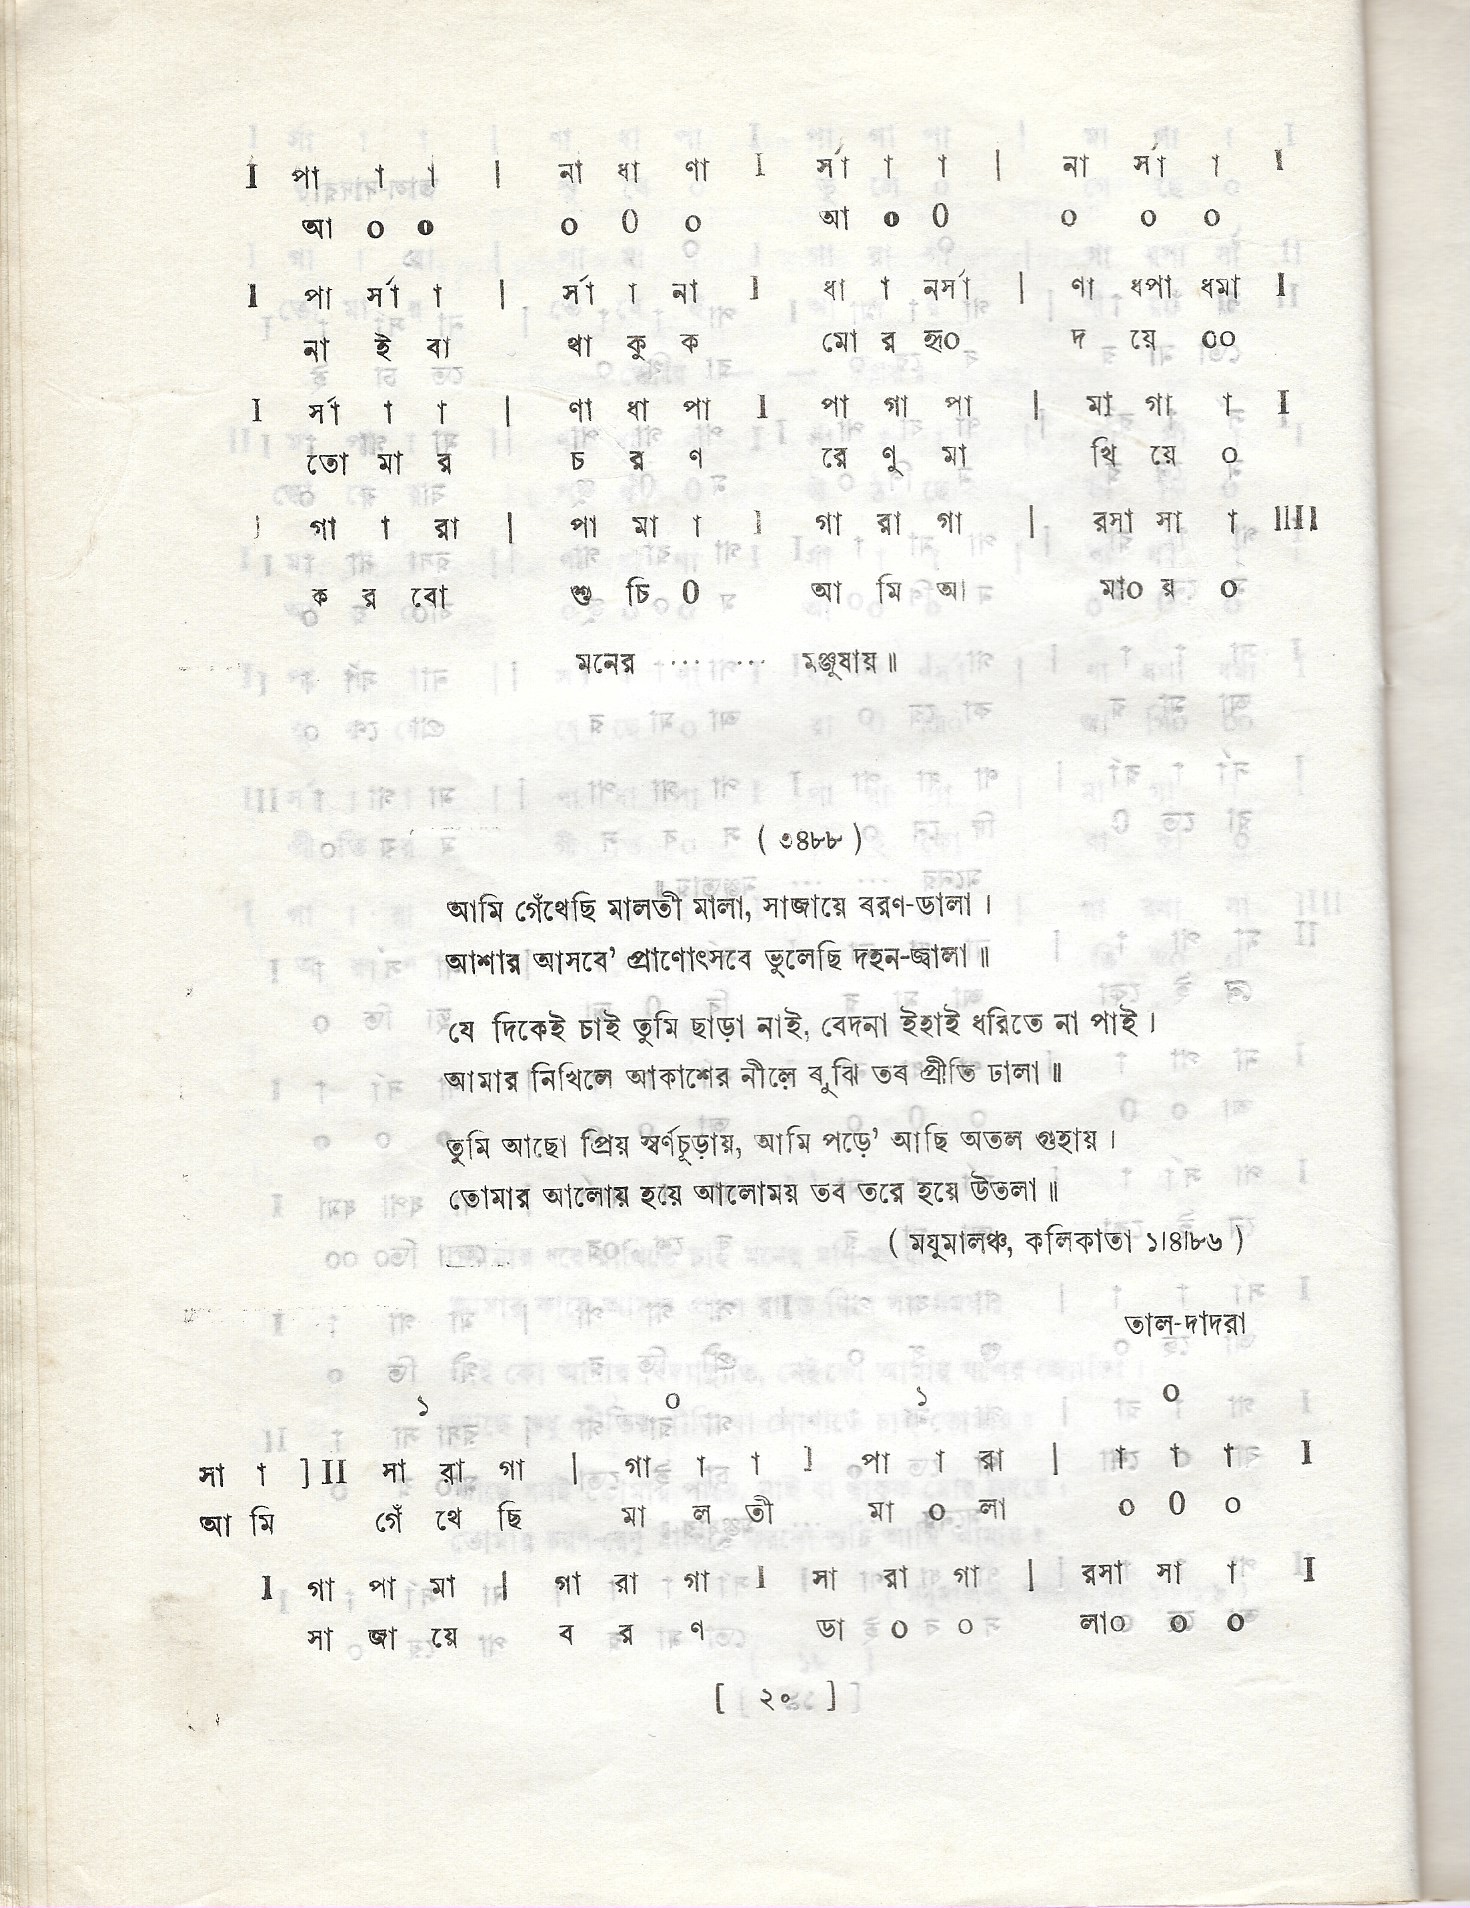 I পা া া | না ধা ণা I র্সা া া | না র্সা া I
আ ০ ০ ০ ০ ০ আ ০ ০ ০ ০ ০
I পা র্সা া | র্সা া না I ধা া নর্সা | ণা ধপা ধমা I
না ই বা থা কু ক মো র হৃ০ দ য়ে ০০
I র্সা া া | ণা ধা পা I পা গা পা | মা গা া I
তো মা র চ র ণ রে ণু মা খি য়ে ০
I গা া রা | পা মা া I গা রা গা | রসা সা া IIII
ক র বো শু চি ০ আ মি আ মা০ র ০
মনের ... ... মঞ্জুষায় ॥
( ৩৪৮৮ )
আমি গেঁথেছি মালতী মালা, সাজায়ে বরণ-ডালা ।
আশার আসবে’ প্রাণোৎসবে ভুলেছি দহন-জ্বালা ॥
যে দিকেই চাই তুমি ছাড়া নাই, বেদনা ইহাই ধরিতে না পাই ।
আমার নিখিলে আকাশের নীলে বুঝি তব প্রীতি ঢালা ॥
তুমি আছো প্রিয় স্বর্ণচূড়ায়, আমি পড়ে’ আছি অতল গুহায় ।
তোমার আলোয় হয়ে আলোময় তব তরে হয়ে উতলা ॥
( মধুমালঞ্চ, কলিকাতা ১।৪।৮৬ )
তাল-দাদরা
১ ০ ১ ০
সা া ] II সা রা গা | গা া া I পা া রা | া া া I
আ মি গেঁ থে ছি মা ল তী মা ০ লা ০ ০ ০
I গা পা মা | গা রা গা I সা রা গা | রসা সা া I
সা জা য়ে ব র ণ ডা ০ ০ লা০ ০ ০
[ ২০ ]